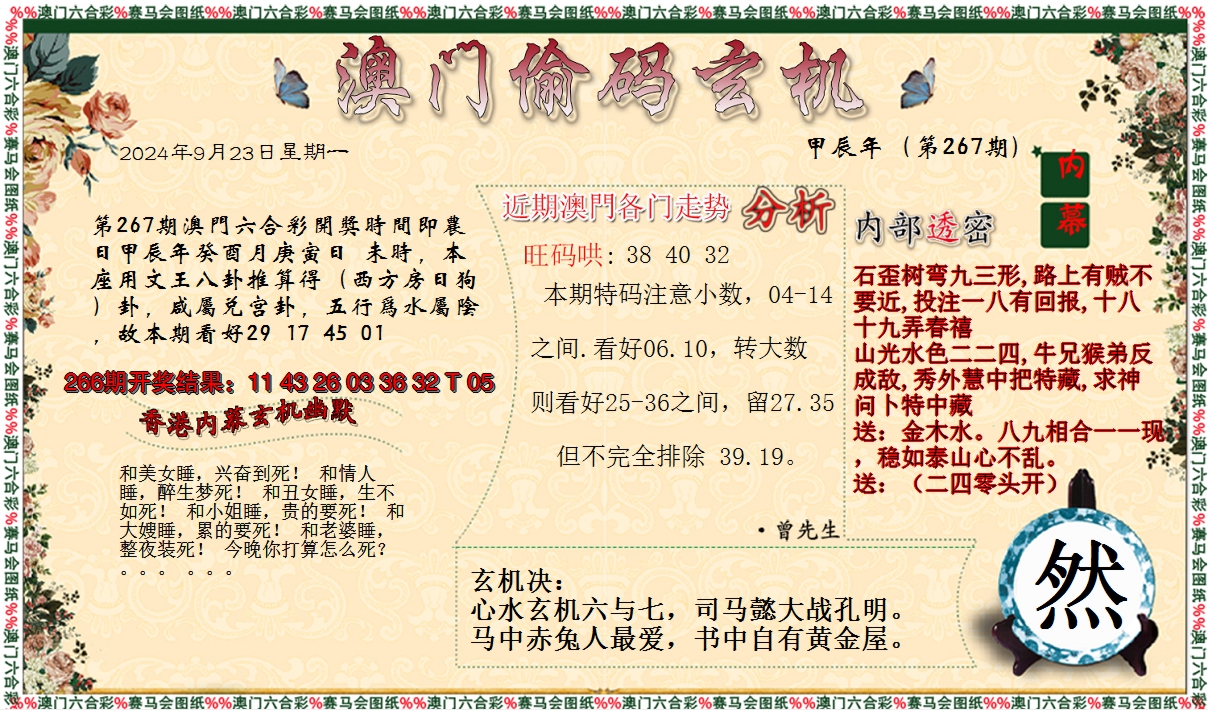 %%澳门六合彩%赛马会图纸%%澳门六合彩%赛马会图纸%%澳门六合彩%赛马会图纸%%澳门六合彩%赛马会图纸%%澳门六合彩%赛马会图纸%%澳门六合彩%赛马会图纸%%
澳门偷码玄机
2024年9月23日星期一
甲辰年（第267期）
内
幕
第267期澳門六合彩開獎時間即農
日甲辰年癸酉月庚寅日 未時，本
座用文王八卦推算得（西方房日狗
）卦，咸屬兑宫卦，五行爲水屬陰
，故本期看好29 17 45 01
266期开奖结果：11 43 26 03 36 32 T 05
香港内幕玄机幽默
和美女睡，兴奋到死！ 和情人
睡，醉生梦死！ 和丑女睡，生不
如死！ 和小姐睡，贵的要死！ 和
大嫂睡，累的要死！ 和老婆睡，
整夜装死！ 今晚你打算怎么死？
。。。 。。。
近期澳門各门走势 分析
旺码哄: 38 40 32
本期特码注意小数，04-14
之间.看好06.10，转大数
则看好25-36之间，留27.35
但不完全排除 39.19。
·曾先生
内部透密
石歪树弯九三形,路上有贼不
要近,投注一八有回报,十八
十九弄春禧
山光水色二二四,牛兄猴弟反
成敌,秀外慧中把特藏,求神
问卜特中藏
送：金木水。八九相合一一现
，稳如泰山心不乱。
送：（二四零头开）
玄机决：
心水玄机六与七，司马懿大战孔明。
马中赤兔人最爱，书中自有黄金屋。
然
%%澳门六合彩%赛马会图纸%%澳门六合彩%赛马会图纸%%澳门六合彩%赛马会图纸%%澳门六合彩%赛马会图纸%%澳门六合彩%赛马会图纸%%澳门六合彩%赛马会图纸%%